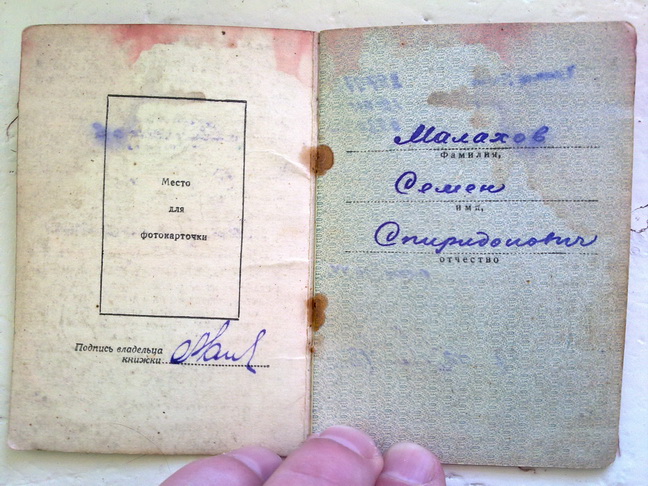 Место
для
фотокарточки
Подпись владельца
книжки
Малахов
Фамилия,
Семен
имя,
Спиридонович
отчество